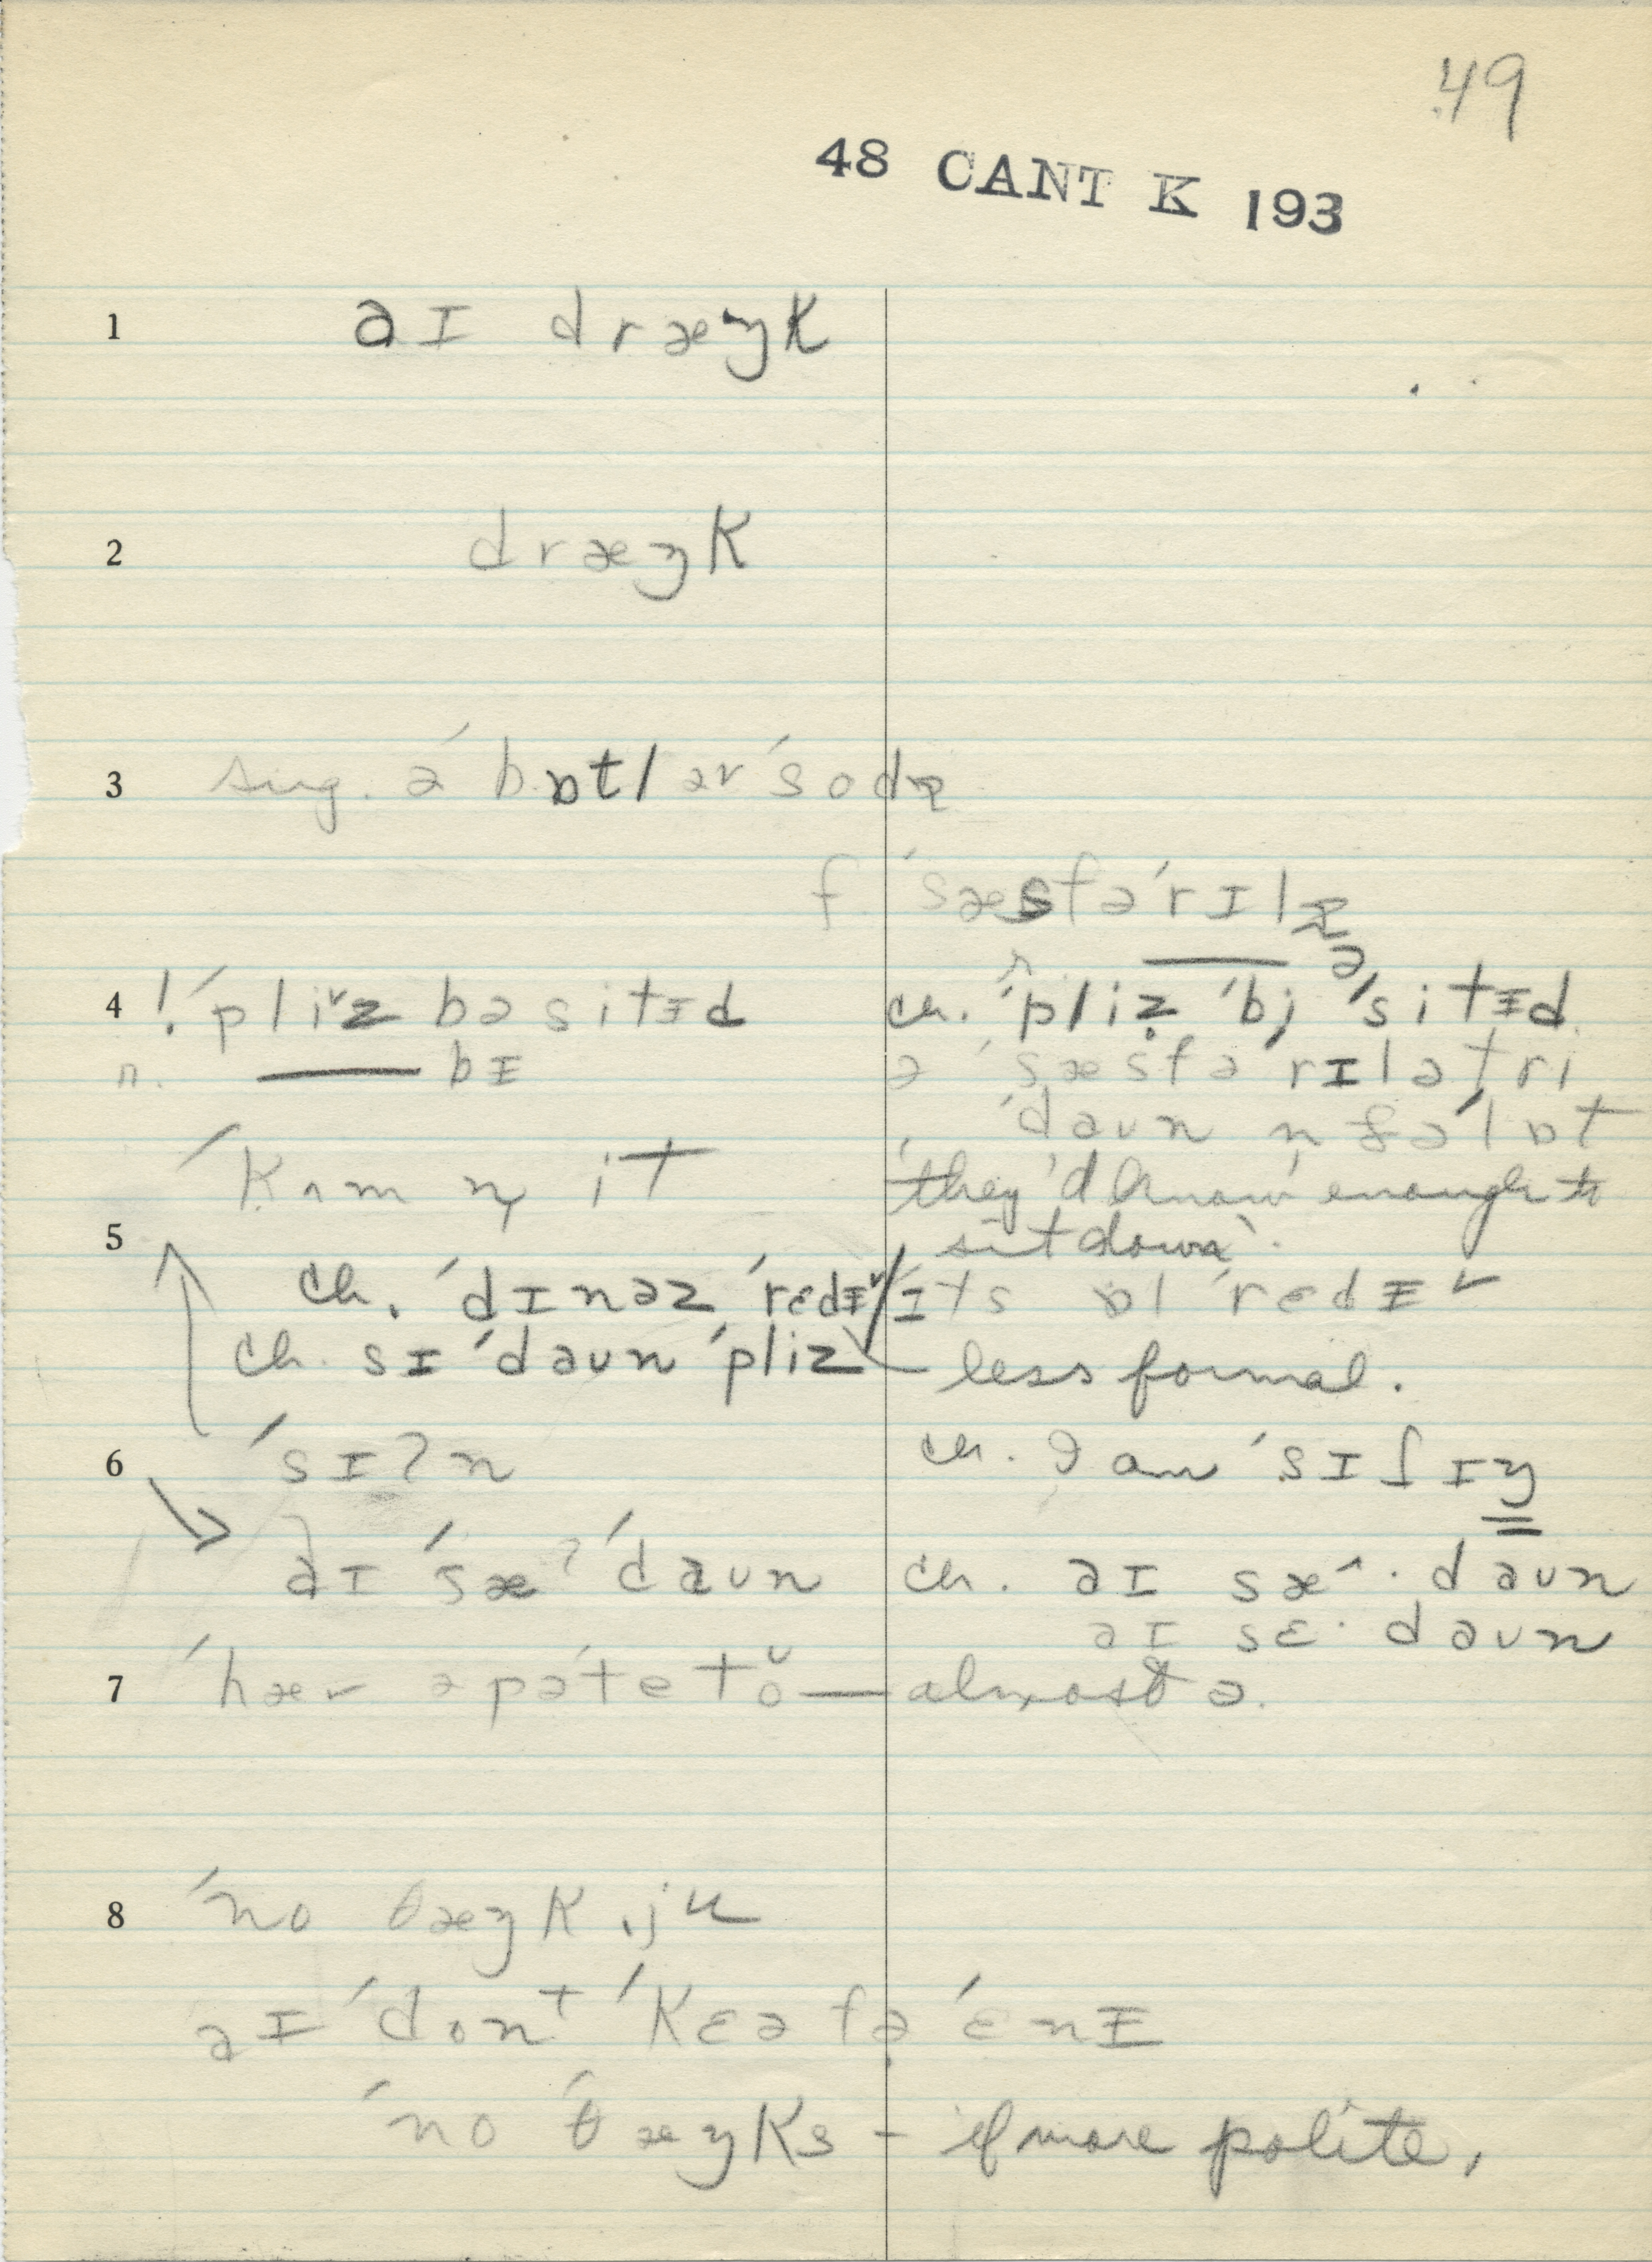 49
48 CANT K 193
1 aɪ dræŋk
2 dræŋk
3 sug. ə ˈbɒtl əv ˈsodɐ
f ˈsæsfəˈrɪlɐ
ə
4 ! ˈpliˇz bə sitɪd ch. ˈpliz ˈbi ˈsitɪd.
n. —— bɪ ə ˈsæsfəˈrɪlə tri
ˈdaʊn n
ˈkʌm ŋ it they'd know enough to
5 sit down.
ch. ˈdɪnəz ˈrɛdɪˇ / ɪts ɒl ˈrɛdɪˇ
ch. sɪ ˈdaʊn ˈpliz less formal.
6 ˈsɪʔn ch. I am ˈsɪʃɪŋ
aɪ ˈsæʔ ˈdaʊn ch. aɪ sæ^· daʊn
aɪ sɛ· daʊn
7 ˈhæv ə pəˈtetŏ — almost ə.
8 ˈno θæŋk ju
aɪ ˈdont ˈkɛə fə ˈɛnɪ
ˈno ˈθæŋks – if more polite,